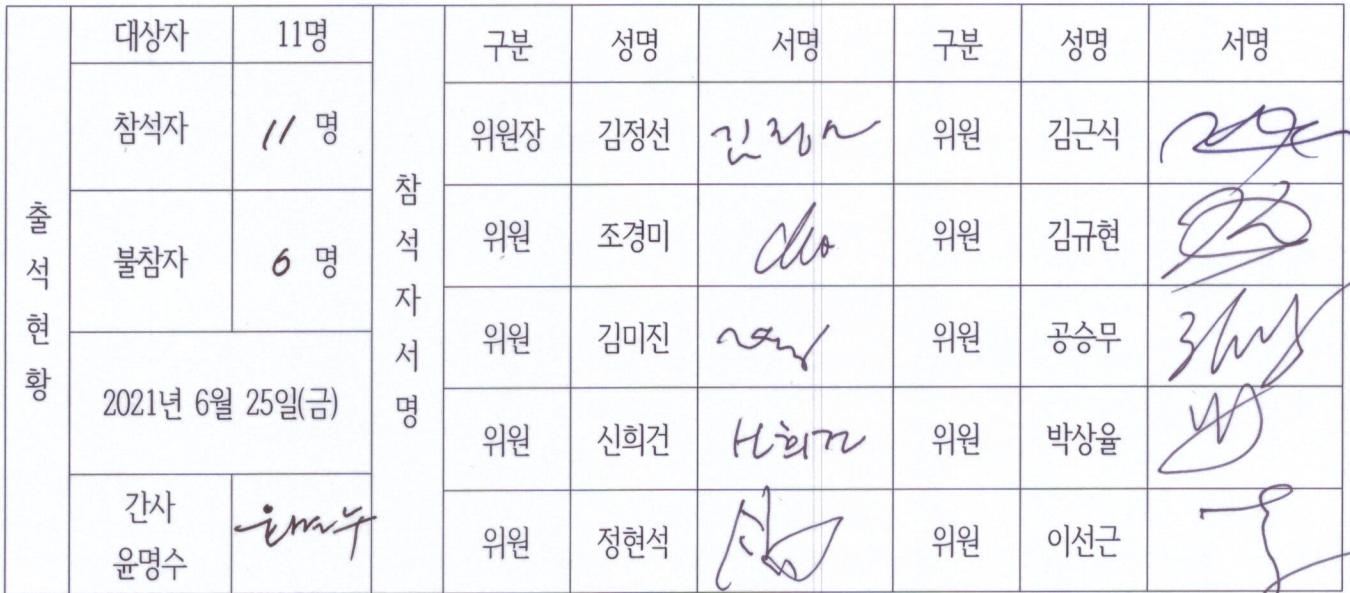 출석현황
대상자 11명
참석자 11 명
불참자 0 명
2021년 6월 25일(금)
간사
윤명수
참석자서명
구분 성명 서명 구분 성명 서명
위원장 김정선 위원 김근식
위원 조경미 cho 위원 김규현
위원 김미진 위원 공승무
위원 신희건 신희건 위원 박상율
위원 정현석 위원 이선근